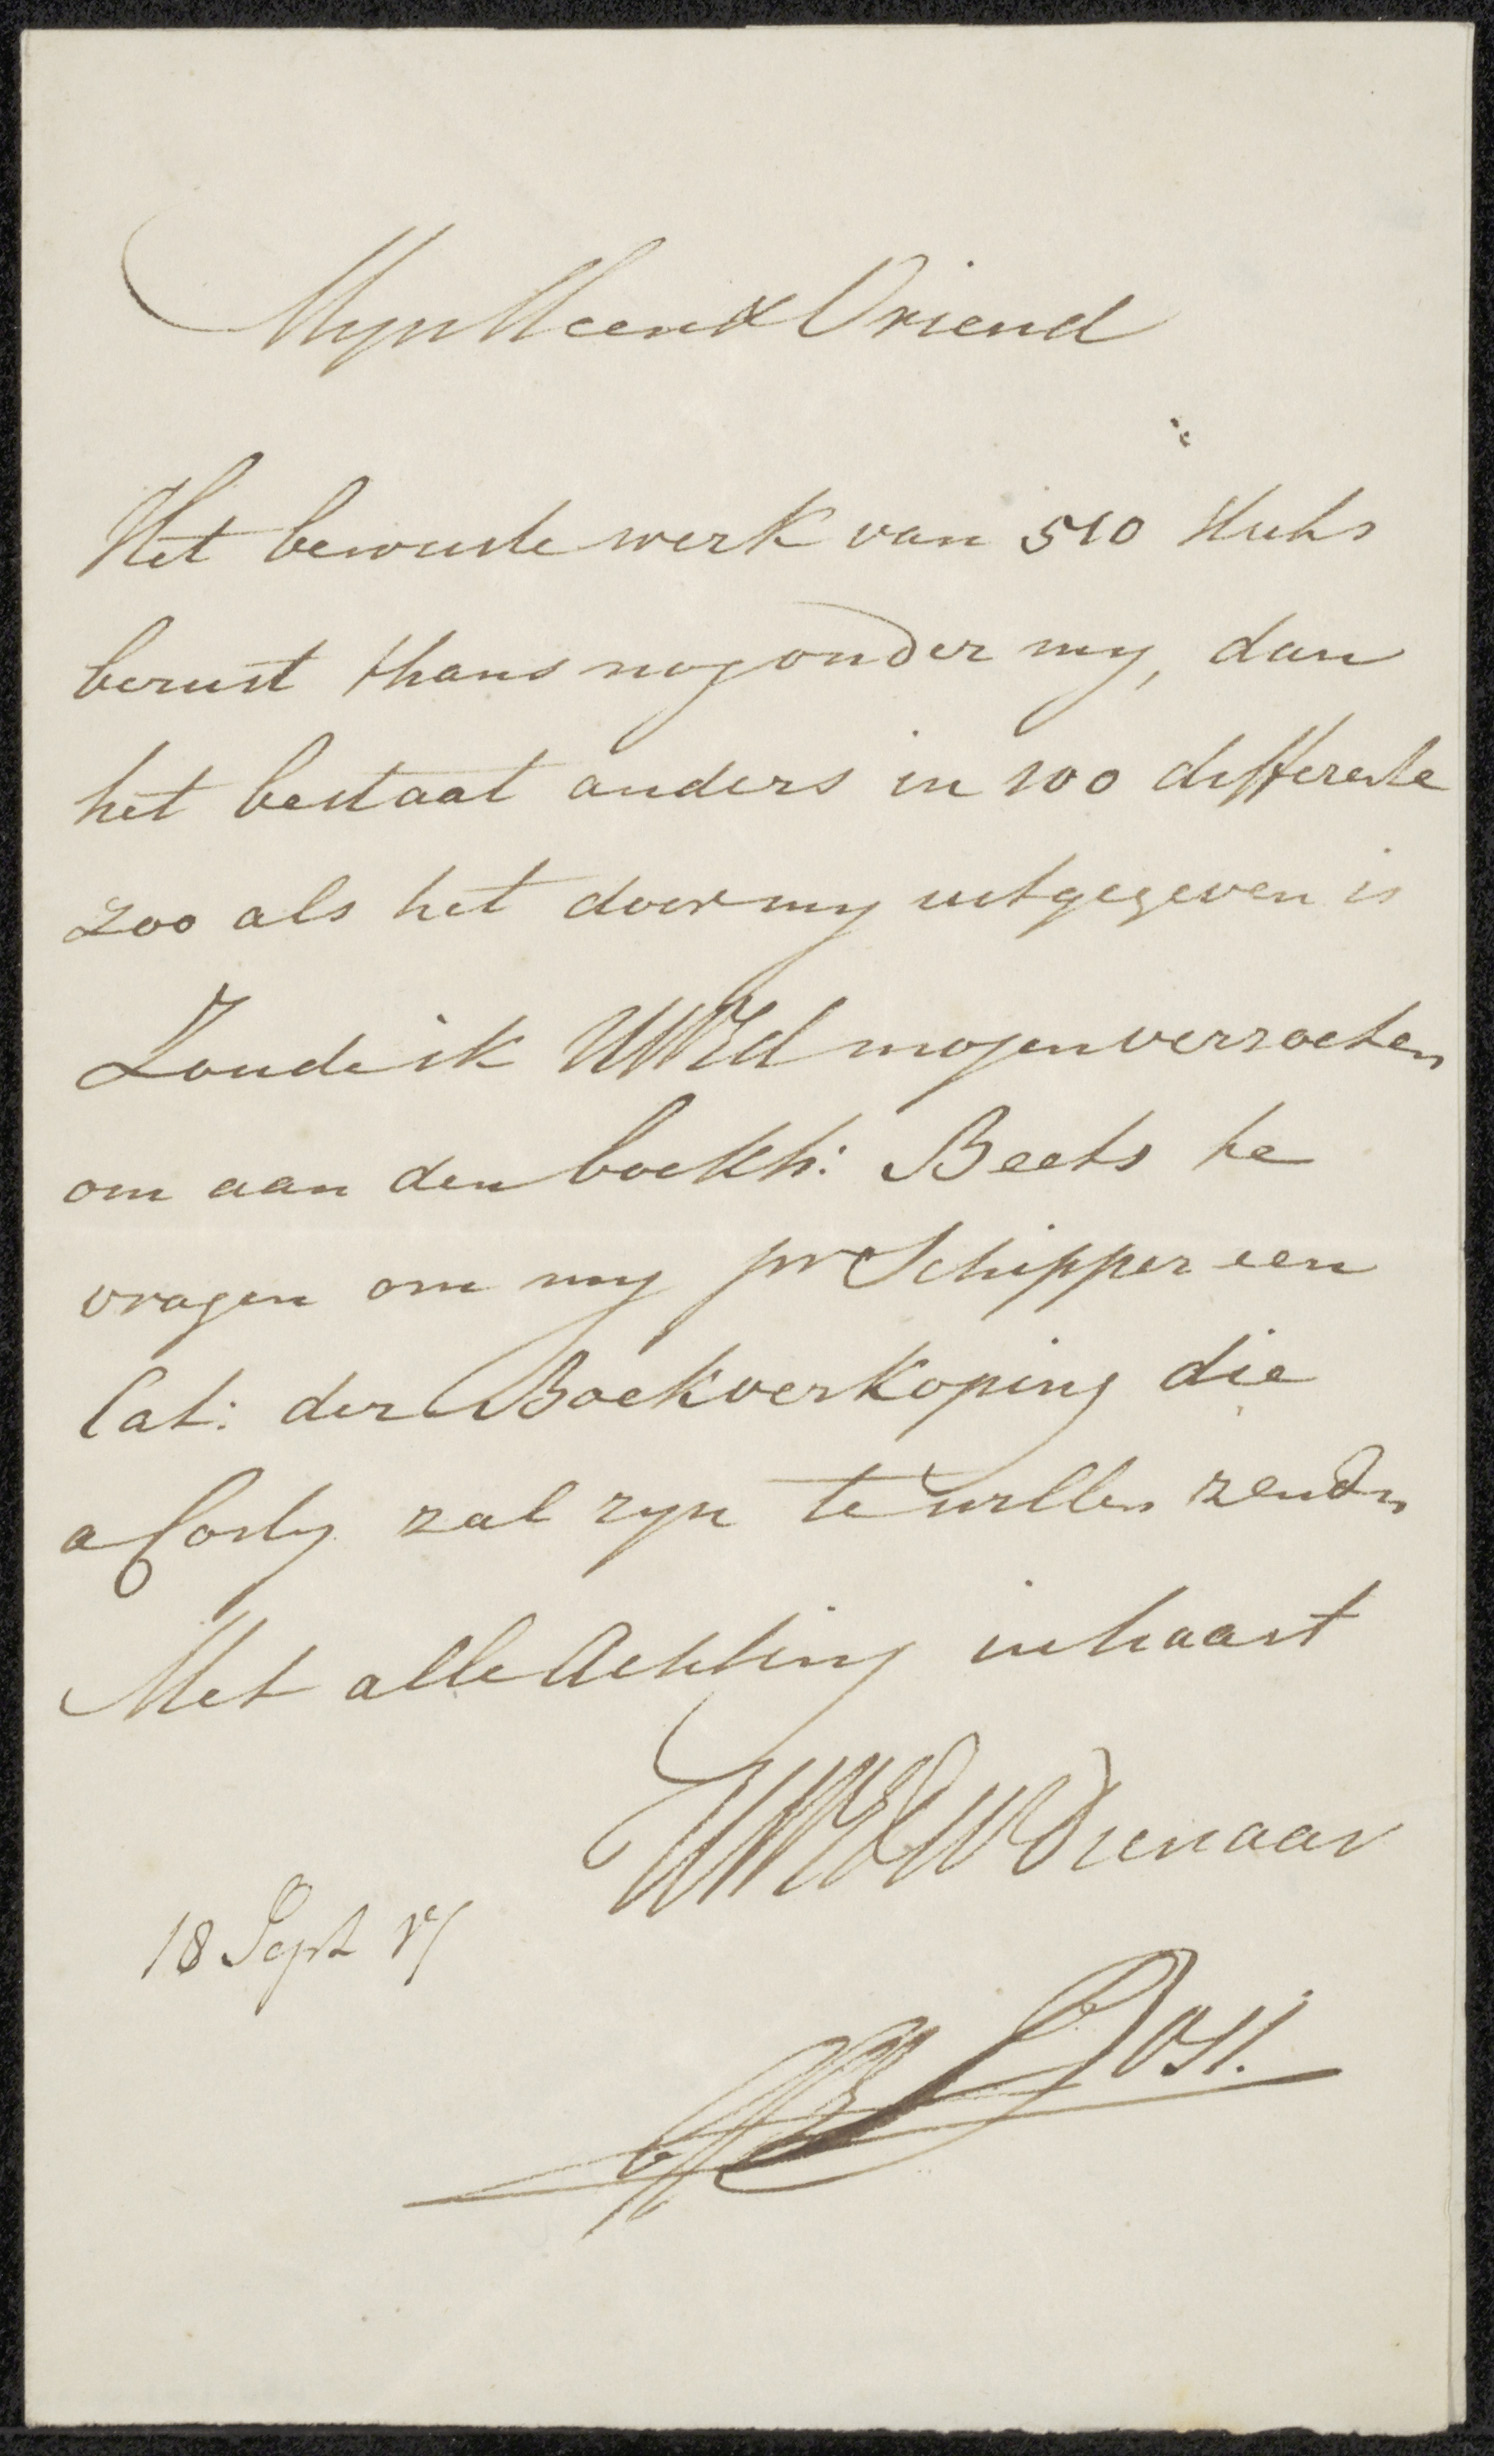 Myn Heer & Vriend
Het bewuste werk van 510 stuks
berust thans nog onder my, dan
het bestaat anders in 100 differente
zoo als het door my uitgegeven is
Zoude ik UWEd mogen verzoeken
om aan den boekh: Beets te
vragen om my pr Schipper een
Cat: der Boekverkoping die
a Costy zal zyn te willen zenden
Met alle Achting in haast
UWEdDW Dienaar
18 Sept
Post.